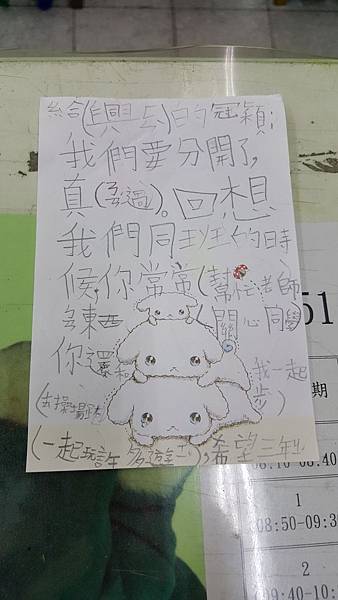 給(興去)的冠穎:
我們要分開了,
真(難過)。回想
我們同班的時
候,你常常(幫忙老師
東西)(關心同學
你還和 我一起
(去操場 步)
(一起玩許多遊 ),希望三年
51
期
08:10-08:40
1
08:50-09:30
2
09:40-10: